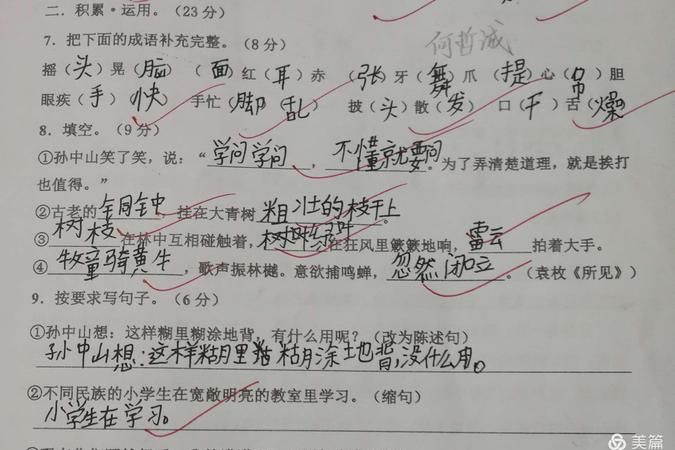 二.积累·运用。(23分)
何哲诚
7.把下面的成语补充完整。(8分)
摇(头)晃(脑) (面)红(耳)赤 (张)牙(舞)爪 (提)心(吊)胆
眼疾(手)(快) 手忙(脚)(乱) 披(头)散(发) 口(干)舌(燥)
8.填空。(9分)
①孙中山笑了笑,说:“学问学问,不懂就要问。为了弄清楚道理,就是挨打
也值得。”
②古老的铜钟,挂在大青树粗壮的枝干上。
③树枝在林中互相碰触着,树叶绿叶在狂风里簌簌地响,雷云拍着大手。
④牧童骑黄牛,歌声振林樾。意欲捕鸣蝉,忽然闭口立。(袁枚《所见》)
9.按要求写句子。(6分)
①孙中山想:这样糊里糊涂地背,有什么用呢?(改为陈述句)
孙中山想:这样糊里糊涂地背,没什么用。
②不同民族的小学生在宽敞明亮的教室里学习。(缩句)
小学生在学习。
美篇